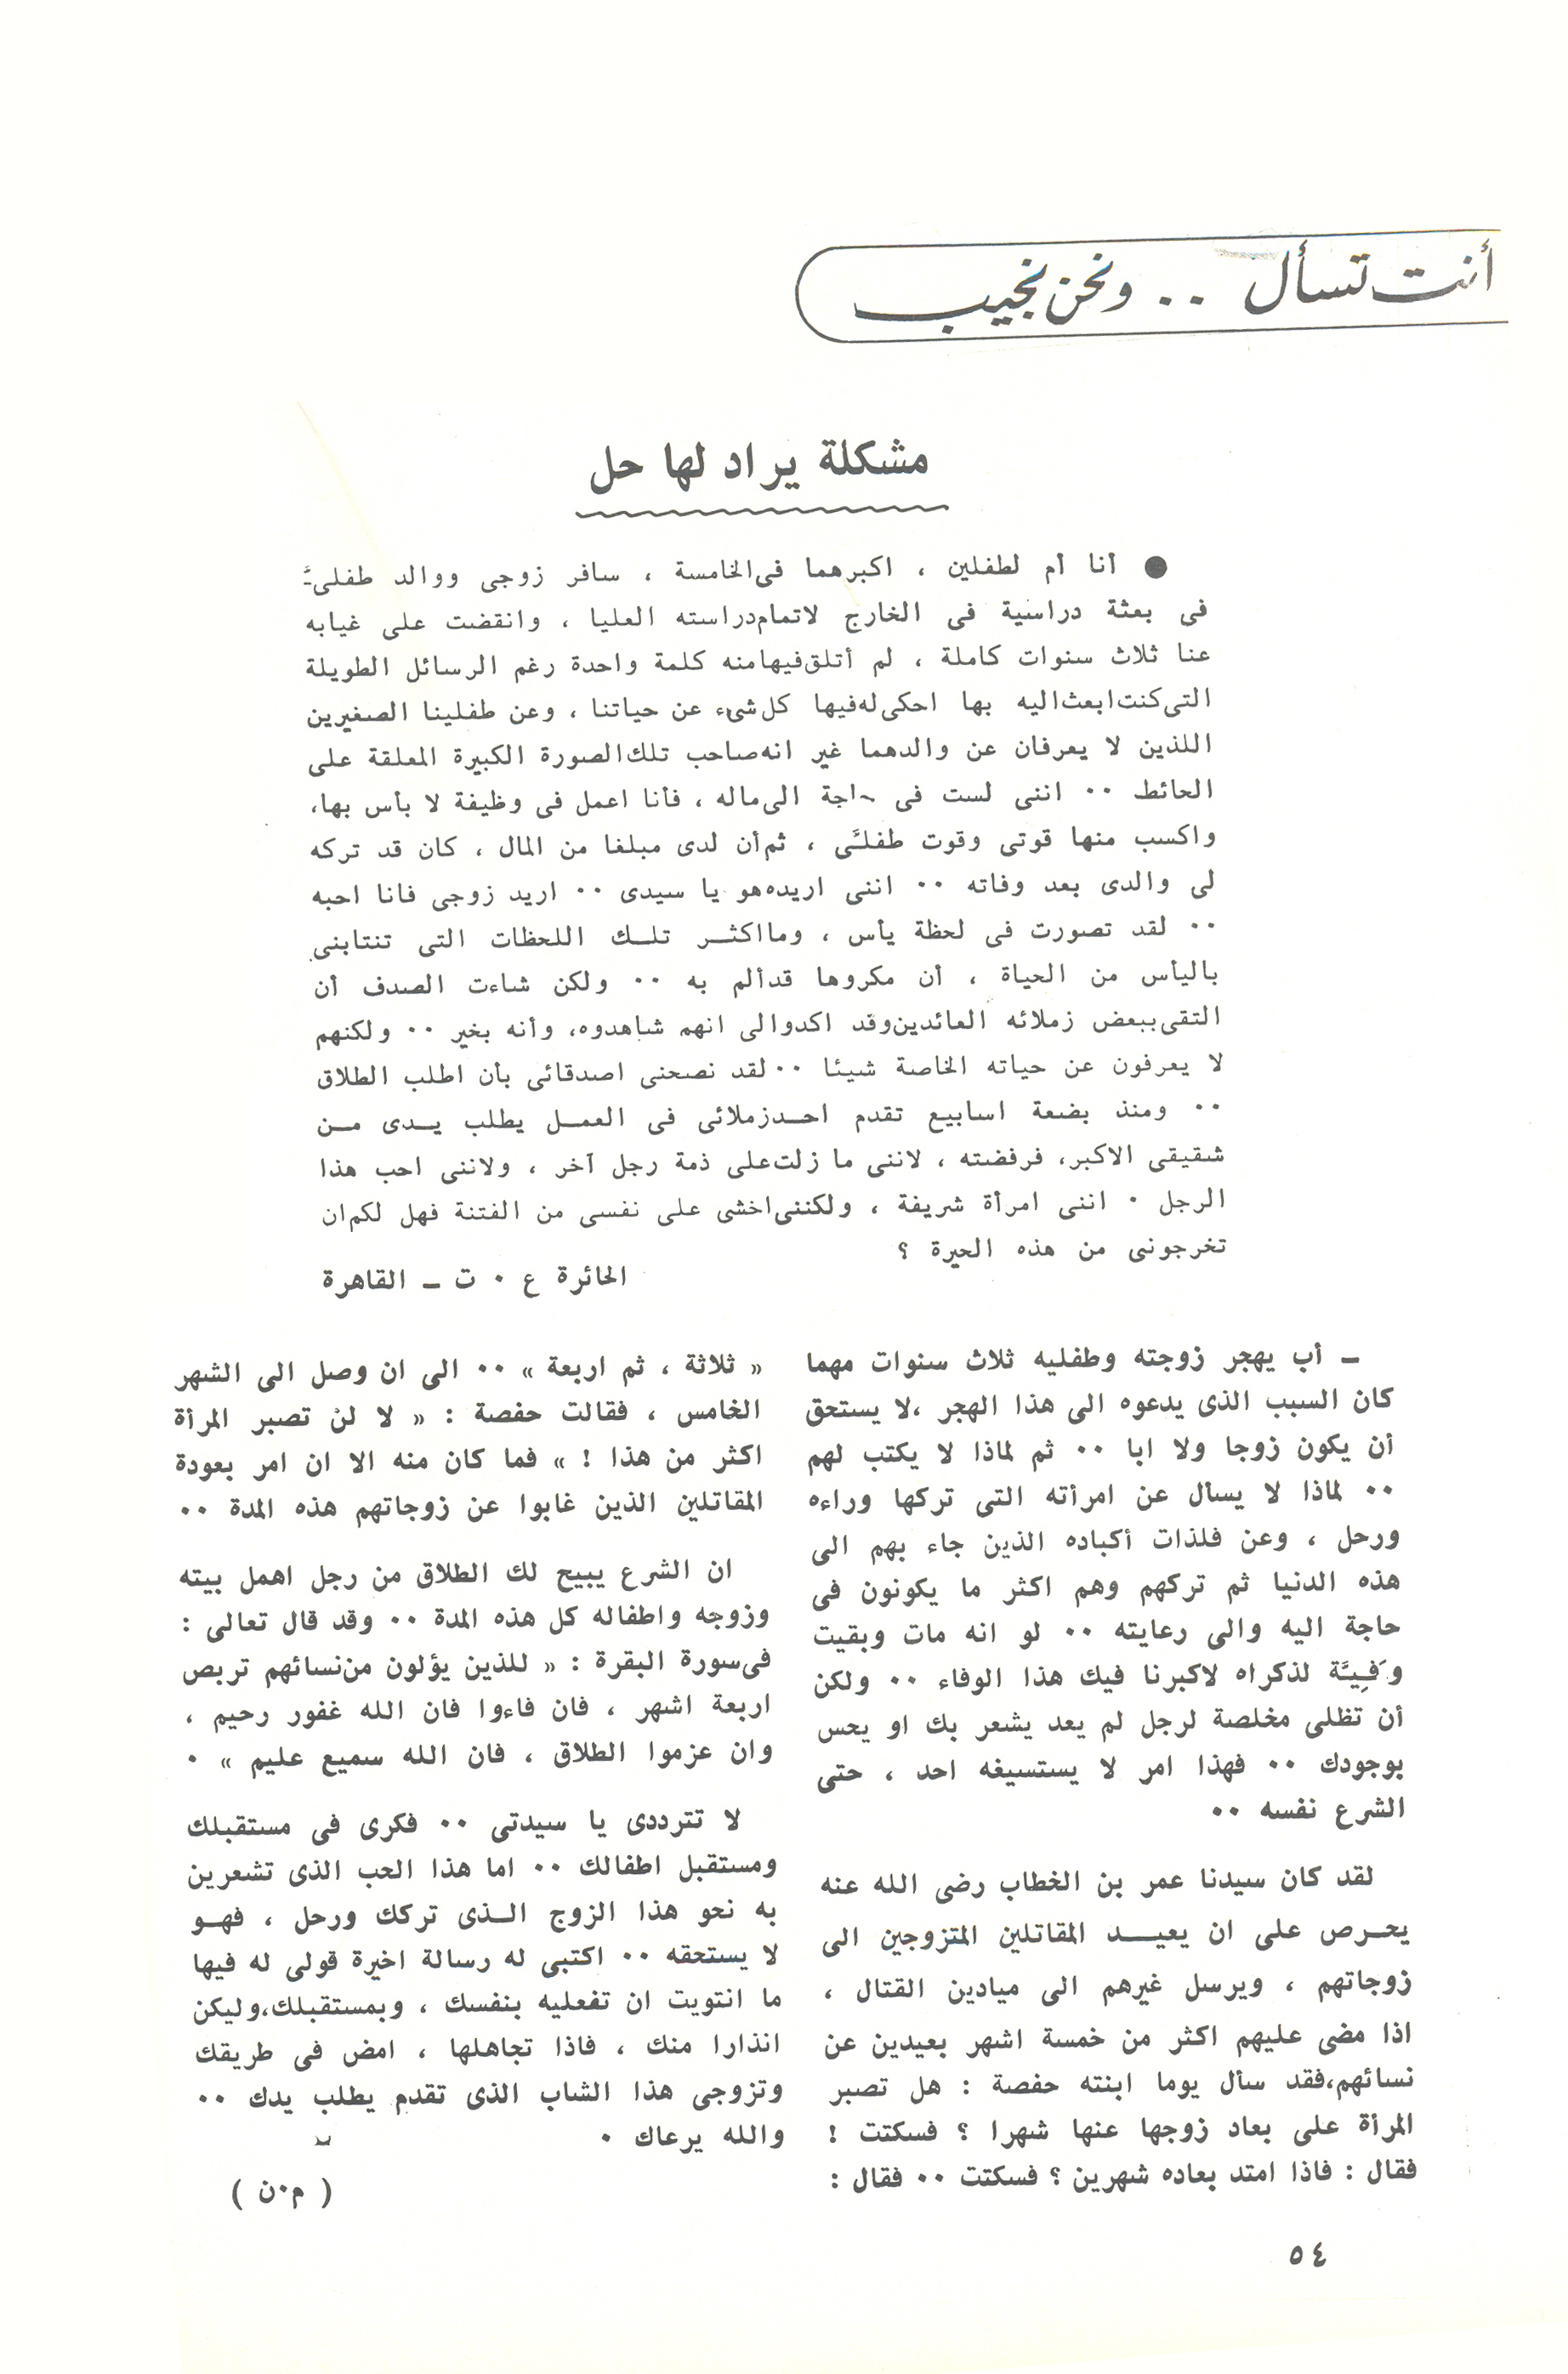 أنت تسأل .. ونحن نجيب
مشكلة يراد لها حل
● أنا أم لطفلين ، اكبرهما فى الخامسة ، سافر زوجى ووالد طفلىَّ
فى بعثة دراسية فى الخارج لاتمام دراسته العليا ، وانقضت على غيابه
عنا ثلاث سنوات كاملة ، لم أتلق فيها منه كلمة واحدة رغم الرسائل الطويلة
التى كنت ابعث اليه بها احكى له فيها كل شىء عن حياتنا ، وعن طفلينا الصغيرين
اللذين لا يعرفان عن والدهما غير انه صاحب تلك الصورة الكبيرة المعلقة على
الحائط ٠٠ اننى لست فى حاجة الى ماله ، فأنا اعمل فى وظيفة لا بأس بها،
واكسب منها قوتى وقوت طفلىَّ ، ثم أن لدى مبلغا من المال ، كان قد تركه
لى والدى بعد وفاته ٠٠ اننى اريده هو يا سيدى ٠٠ اريد زوجى فانا احبه
٠٠ لقد تصورت فى لحظة يأس ، وما اكثر تلك اللحظات التى تنتابنى
باليأس من الحياة ، أن مكروها قد ألم به ٠٠ ولكن شاءت الصدف أن
التقى ببعض زملائه العائدين وقد اكدوا لى انهم شاهدوه، وأنه بخير ٠٠ ولكنهم
لا يعرفون عن حياته الخاصة شيئا ٠٠ لقد نصحنى اصدقائى بأن اطلب الطلاق
٠٠ ومنذ بضعة اسابيع تقدم احد زملائى فى العمل يطلب يدى من
شقيقى الاكبر، فرفضته ، لاننى ما زلت على ذمة رجل آخر ، ولاننى احب هذا
الرجل ٠ اننى امرأة شريفة ، ولكننى اخشى على نفسى من الفتنة فهل لكم ان
تخرجونى من هذه الحيرة ؟
الحائرة ع ٠ ت ـ القاهرة
ـ أب يهجر زوجته وطفليه ثلاث سنوات مهما
كان السبب الذى يدعوه الى هذا الهجر ،لا يستحق
أن يكون زوجا ولا ابا ٠٠ ثم لماذا لا يكتب لهم
٠٠ لماذا لا يسأل عن امرأته التى تركها وراءه
ورحل ، وعن فلذات أكباده الذين جاء بهم الى
هذه الدنيا ثم تركهم وهم اكثر ما يكونون فى
حاجة اليه والى رعايته ٠٠ لو انه مات وبقيت
وَفِيَّة لذكراه لاكبرنا فيك هذا الوفاء ٠٠ ولكن
أن تظلى مخلصة لرجل لم يعد يشعر بك او يحس
بوجودك ٠٠ فهذا امر لا يستسيغه احد ، حتى
الشرع نفسه ٠٠
لقد كان سيدنا عمر بن الخطاب رضى الله عنه
يحرص على ان يعيد المقاتلين المتزوجين الى
زوجاتهم ، ويرسل غيرهم الى ميادين القتال ،
اذا مضى عليهم اكثر من خمسة اشهر بعيدين عن
نسائهم،فقد سأل يوما ابنته حفصة : هل تصبر
المرأة على بعاد زوجها عنها شهرا ؟ فسكتت !
فقال : فاذا امتد بعاده شهرين ؟ فسكتت ٠٠ فقال :
« ثلاثة ، ثم اربعة » ٠٠ الى ان وصل الى الشهر
الخامس ، فقالت حفصة : « لا لن تصبر المرأة
اكثر من هذا ! » فما كان منه الا ان امر بعودة
المقاتلين الذين غابوا عن زوجاتهم هذه المدة ٠٠
ان الشرع يبيح لك الطلاق من رجل اهمل بيته
وزوجه واطفاله كل هذه المدة ٠٠ وقد قال تعالى :
فى سورة البقرة : « للذين يؤلون من نسائهم تربص
اربعة اشهر ، فان فاءوا فان الله غفور رحيم ،
وان عزموا الطلاق ، فان الله سميع عليم » ٠
لا تترددى يا سيدتى ٠٠ فكرى فى مستقبلك
ومستقبل اطفالك ٠٠ اما هذا الحب الذى تشعرين
به نحو هذا الزوج الذى تركك ورحل ، فهو
لا يستحقه ٠٠ اكتبى له رسالة اخيرة قولى له فيها
ما انتويت ان تفعليه بنفسك ، وبمستقبلك،وليكن
انذارا منك ، فاذا تجاهلها ، امض فى طريقك
وتزوجى هذا الشاب الذى تقدم يطلب يدك ٠٠
والله يرعاك ٠
( م٠ن )
٥٤